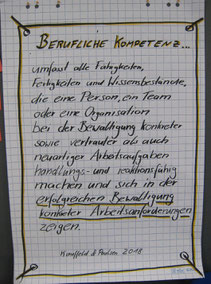 BERUFLICHE KOMPETENZ...
umfasst alle Fähigkeiten,
Fertigkeiten und Wissensbestände,
die eine Person, ein Team
oder eine Organisation
bei der Bewältigung konkreter
sowie vertrauter als auch
neuartiger Arbeitsaufgaben
handlungs- und reaktionsfähig
machen und sich in der
erfolgreichen Bewältigung
konkreter Arbeitsanforderungen
zeigen.
& Paulsen 2018